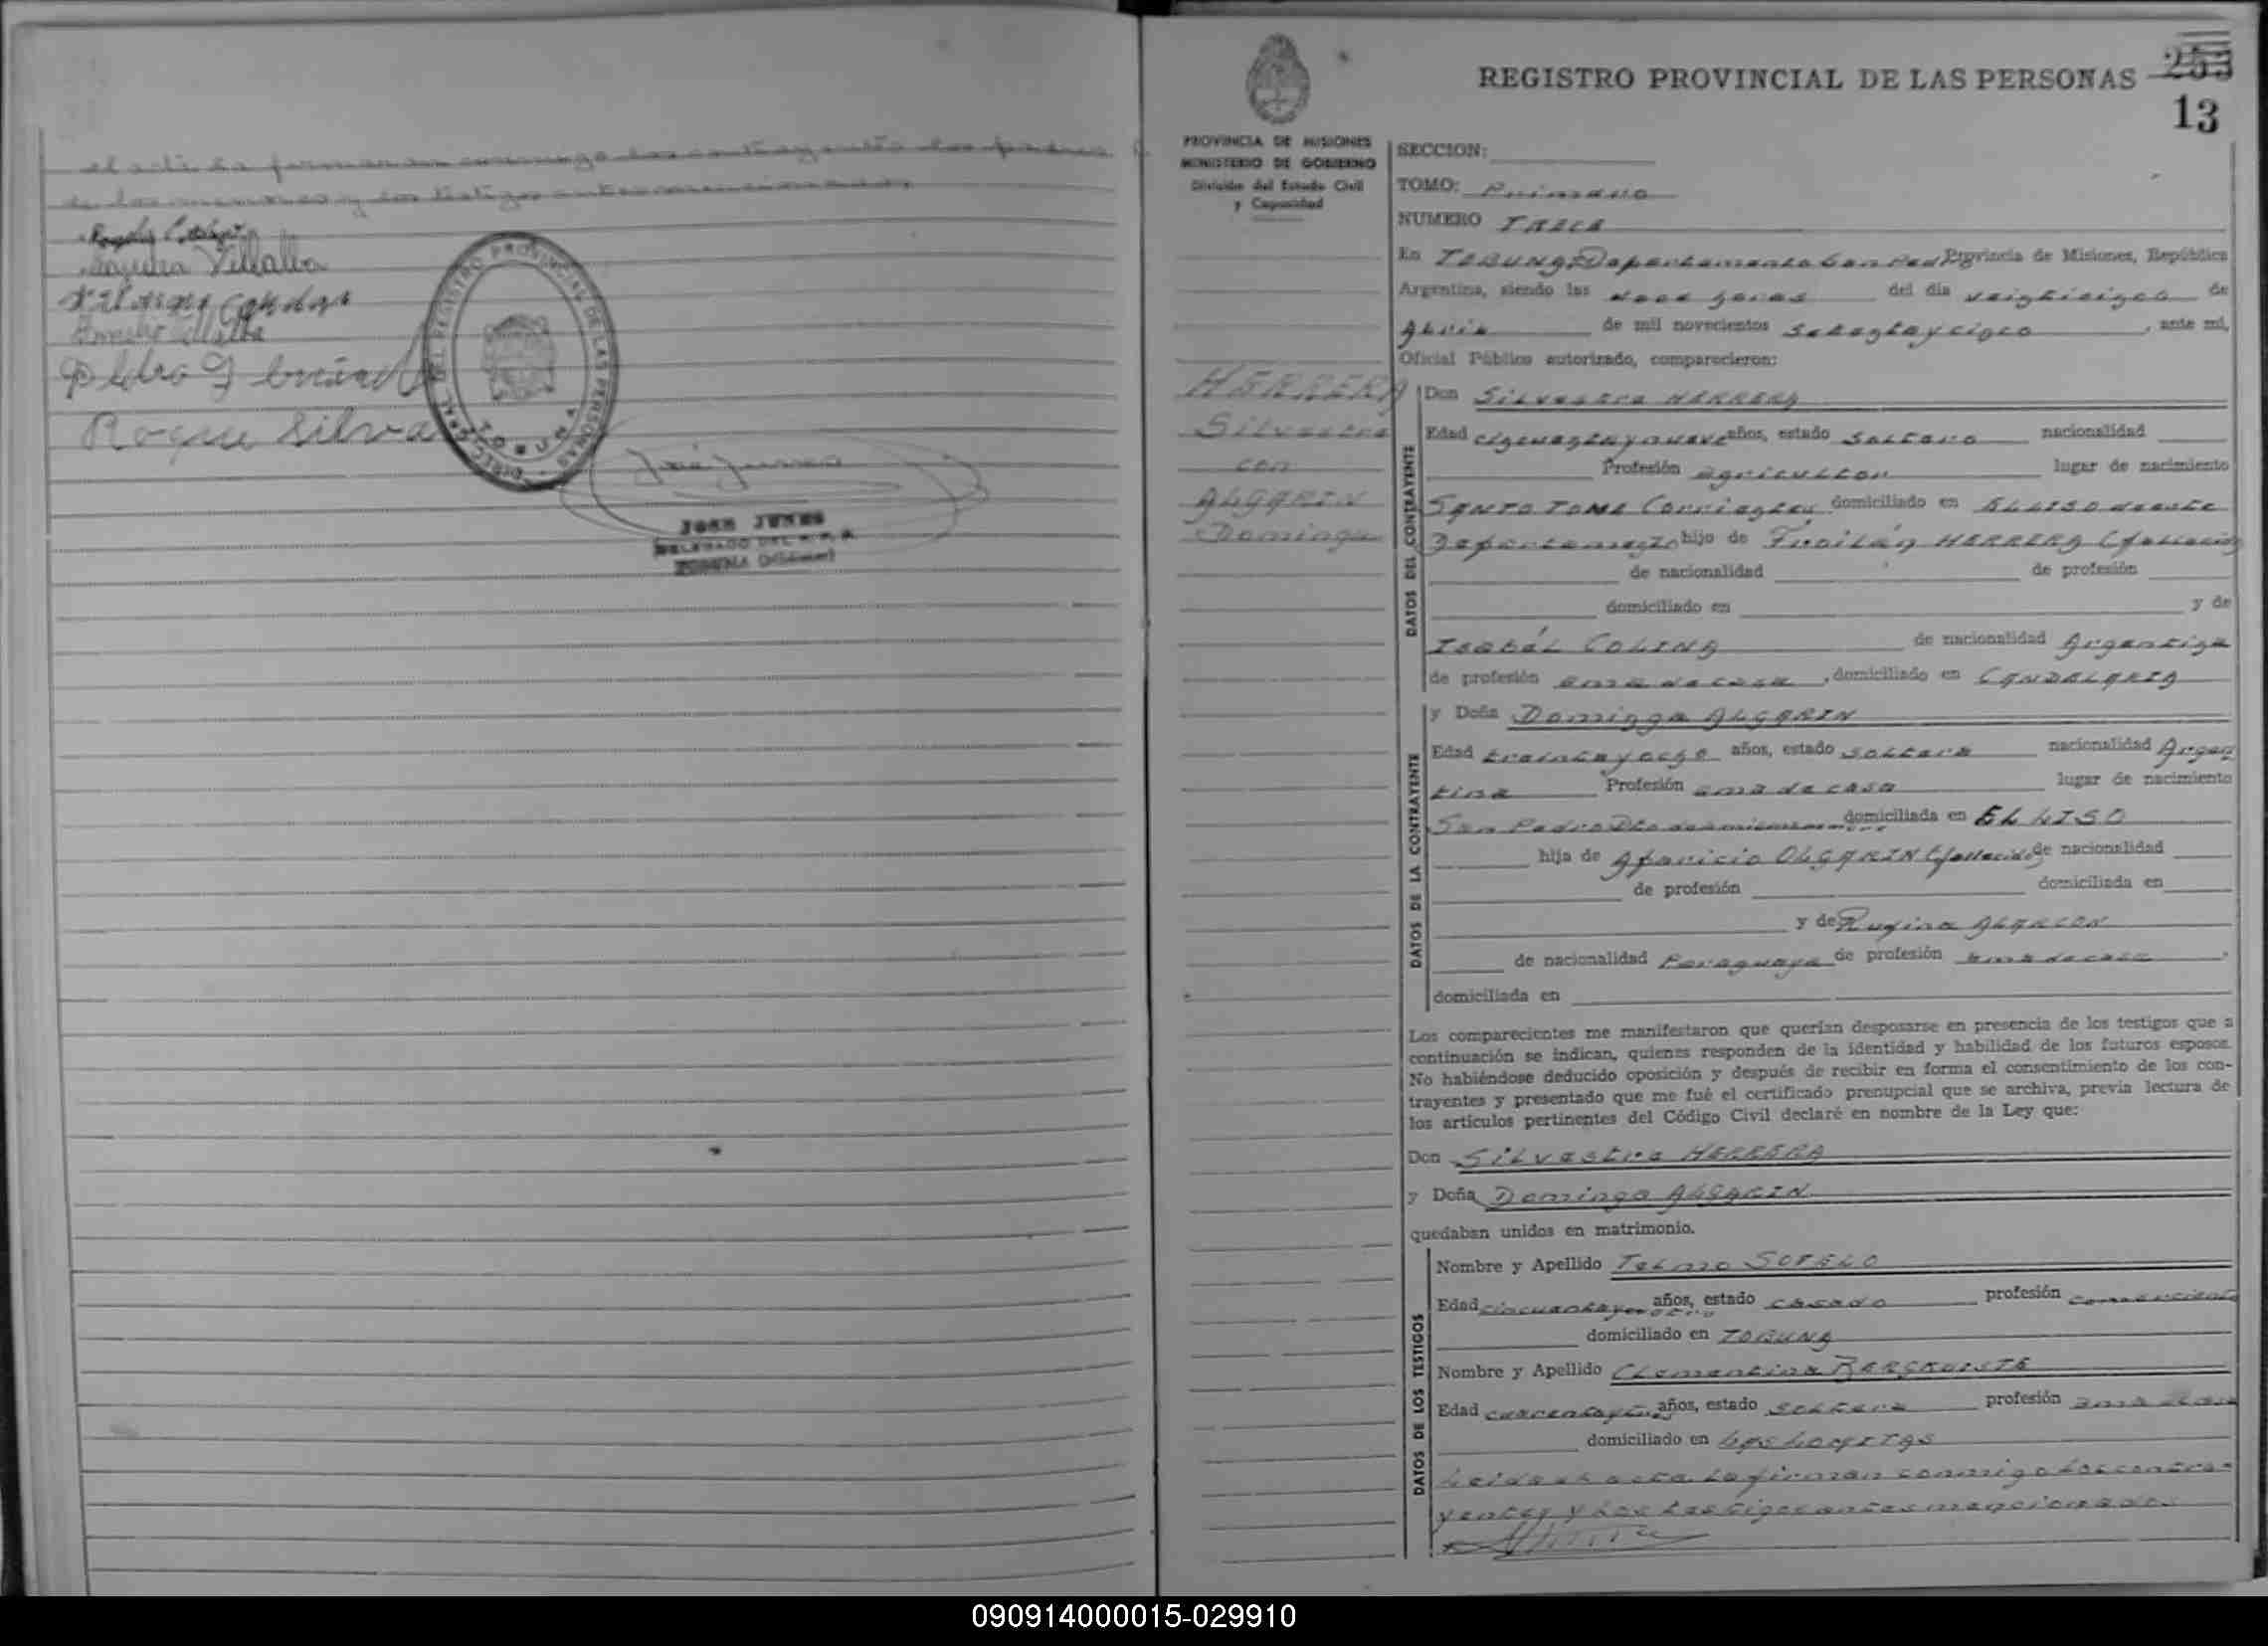 el acta la firman conmigo los contrayentes los padres
de los menores y los testigos antes mencionados.
Villalba
Pedro
Roque Silva
DIRECC. GRAL. DEL REGISTRO PROVINCIAL DE LAS PERSONAS
TOBUNA
JOSE JUNES
DELEGADO DEL R. P. P.
TOBUNA (Misiones)
253
REGISTRO PROVINCIAL DE LAS PERSONAS
13
PROVINCIA DE MISIONES
MINISTERIO DE GOBIERNO
División del Estado Civil
y Capacidad
HERRERA
Silvestre
con
ALGARIN
Dominga
SECCION:
TOMO: Primero
NUMERO TRECE
En TOBUNA Departamento San Pedro Provincia de Misiones, República
Argentina, siendo las doce horas del día veinticinco de
Abril de mil novecientos setenta y cinco, ante mí,
Oficial Público autorizado, comparecieron:
DATOS DEL CONTRAYENTE
Don Silvestre HERRERA
Edad cincuenta y nueve años, estado soltero nacionalidad
Profesión agricultor lugar de nacimiento
SANTO TOME Corrientes domiciliado en EL LISO de este
Departamento hijo de Froilán HERRERA (fallecido)
de nacionalidad de profesión
domiciliado en y de
Isabél COLINA de nacionalidad Argentina
de profesión ama de casa, domiciliado en CANDELARIA
DATOS DE LA CONTRAYENTE
y Doña Dominga ALGARIN
Edad treinta y ocho años, estado soltera nacionalidad Argen
tina Profesión ama de casa lugar de nacimiento
San Pedro Dto de misiones domiciliada en EL LISO
hija de Aparicio OLGARIN (fallecido) de nacionalidad
de profesión domiciliada en
y de Rugina ALARCON
de nacionalidad Paraguaya de profesión ama de casa,
domiciliada en
Los comparecientes me manifestaron que querían desposarse en presencia de los testigos que a
continuación se indican, quienes responden de la identidad y habilidad de los futuros esposos.
No habiéndose deducido oposición y después de recibir en forma el consentimiento de los con-
trayentes y presentado que me fué el certificado prenupcial que se archiva, previa lectura de
los artículos pertinentes del Código Civil declaré en nombre de la Ley que:
Don Silvestre HERRERA
y Doña Dominga ALGARIN
quedaban unidos en matrimonio.
DATOS DE LOS TESTIGOS
Nombre y Apellido Telmo SOTELO
Edad cincuenta y años, estado casado profesión comerciante
domiciliado en TOBUNA
Nombre y Apellido Clementina
Edad años, estado soltera profesión ama de casa
domiciliado en
Leida el acta la firman conmigo los contra-
yentes y los testigos antes mencionados
090914000015-029910